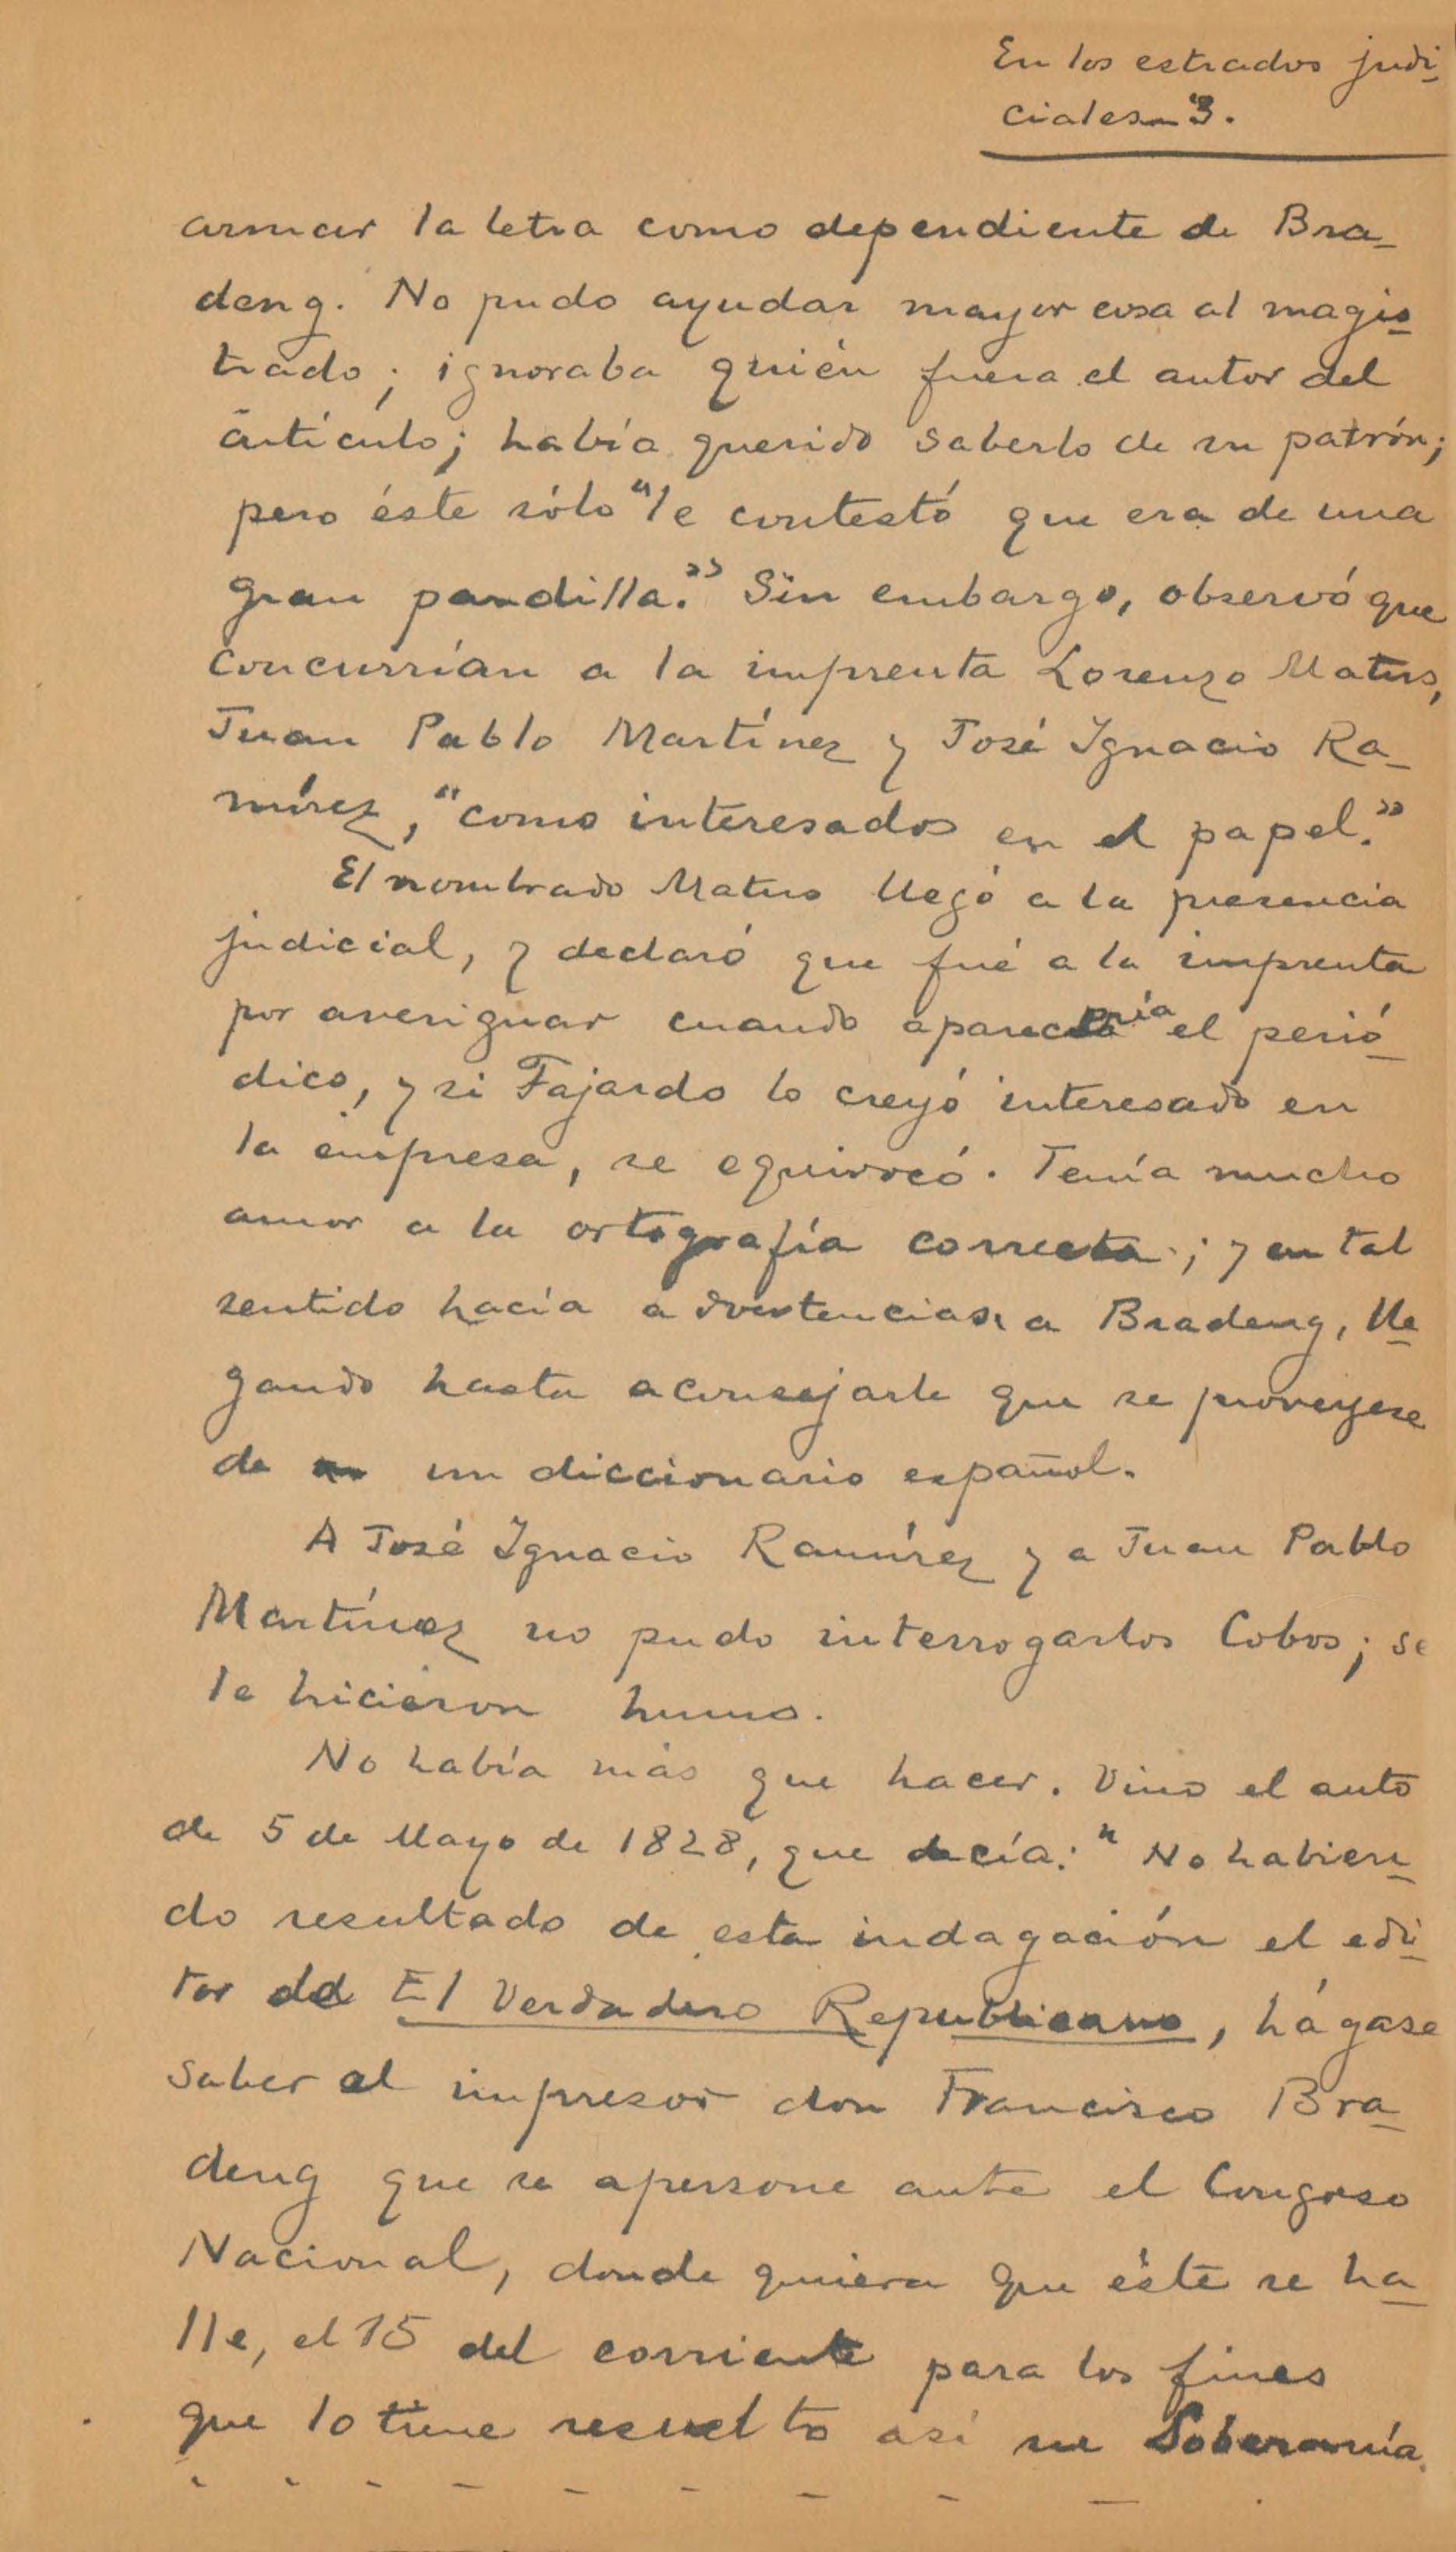 En los estrados judi-
ciales—3.
armar la letra como dependiente de Bra-
deng. No pudo ayudar mayor cosa al magis-
trado; ignoraba quién fuera el autor del
artículo; había querido saberlo de su patrón;
pero éste sólo "le contestó que era de una
gran pandilla." Sin embargo, observó que
concurrían a la imprenta Lorenzo Matus,
Juan Pablo Martínez y José Ignacio Ra-
mírez, "como interesados en el papel."
El nombrado Matus llegó a la presencia
judicial, y declaró que fué a la imprenta
por averiguar cuando aparecería el perió-
dico, y si Fajardo lo creyó interesado en
la empresa, se equivocó. Tenía mucho
amor a la ortografía correcta; y en tal
sentido hacía advertencias a Bradeng, lle-
gando hasta aconsejarle que se proveyese
de un diccionario español.
A José Ignacio Ramírez y a Juan Pablo
Martínez no pudo interrogarlos Cobos; se
le hicieron humo.
No había más que hacer. Vino el auto
de 5 de Mayo de 1828, que decía: "No habien-
do resultado de esta indagación el edi-
tor del El Verdadero Republicano, hágase
saber al impresor don Francisco Bra-
deng que se apersone ante el Congreso
Nacional, donde quiera que éste se ha-
lle, el 15 del corriente para los fines
que lo tiene resuelto así su Soberanía.